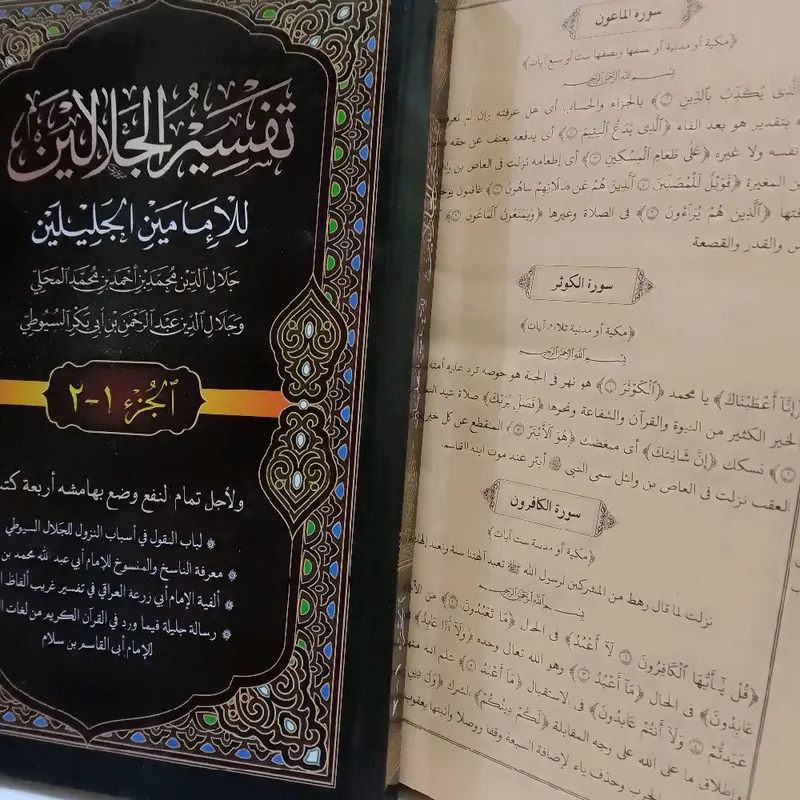 تفسير الجلالين
للإمامين الجليلين
جلال الدين محمد بن أحمد بن محمد المحلي
وجلال الدين عبد الرحمن بن أبي بكر السيوطي
الجزء ١-٢
ولأجل تمام لنفع وضع بهامشه أربعة كتب
لباب النقول في أسباب النزول للجلال السيوطي
معرفة الناسخ والمنسوخ للإمام أبي عبد لله محمد بن
ألفية الإمام أبي زرعة العراقي في تفسير غريب ألفاظ
رسالة جليلة فيما ورد في القرآن الكريم من لغات
للإمام أبي القاسم بن سلام
سورة الماعون
﴿مكية أو مدنية أو نصفها ونصفها ست أو سبع آيات﴾
بسم الله الرحمن الرحيم
الذى يكذب بالدين ١﴾ بالجزاء والحساب أى هل عرفته وإن لم تعرفه
بتقدير هو بعد الفاء ﴿الذى يدع اليتيم ٢﴾ أى يدفعه بعنف عن حقه
نفسه ولا غيره ﴿على طعام المسكين ٣﴾ أى إطعامه نزلت فى العاص بن
بن المغيرة ﴿فويل للمصلين ٤ الذين هم عن صلاتهم ساهون ٥﴾ غافلون
﴿الذين هم يراءون ٦﴾ فى الصلاة وغيرها ﴿ويمنعون الماعون ٧﴾
والقدر والقصعة
سورة الكوثر
﴿مكية أو مدنية ثلاث آيات﴾
بسم الله الرحمن الرحيم
﴿إنا أعطيناك﴾ يا محمد ﴿الكوثر ١﴾ هو نهر فى الجنة هو حوضه ترد عليه أمته
الخير الكثير من النبوة والقرآن والشفاعة ونحوها ﴿فصل لربك﴾ صلاة عيد
﴾ نسكك ﴿إن شانئك﴾ أى مبغضك ﴿هو الأبتر ٣﴾ المنقطع عن كل خير
العقب نزلت فى العاص بن وائل سمى النبى ﷺ أبتر عند موت ابنه القاسم.
سورة الكافرون
﴿مكية أو مدنية ست آيات﴾
نزلت لما قال رهط من المشركين لرسول الله ﷺ تعبد آلهتنا سنة ونعبد إلهك
بسم الله الرحمن الرحيم
﴿قل يأيها الكافرون ١ لا أعبد﴾ فى الحال ﴿ما تعبدون ٢﴾ من
عابدون﴾ فى الحال ﴿ما أعبد ٣﴾ وهو الله تعالى وحده ﴿ولا أنا عابد﴾
عبدتم ٤ ولا أنتم عابدون﴾ فى الاستقبال ﴿ما أعبد ٥﴾ علم الله منهم
وإطلاق ما على الله على وجه المقابلة ﴿لكم دينكم﴾ الشرك ﴿ولى دين
الحرب وحذف ياء لإضافة السبعة وقفا ووصلا وأثبتها يعقوب